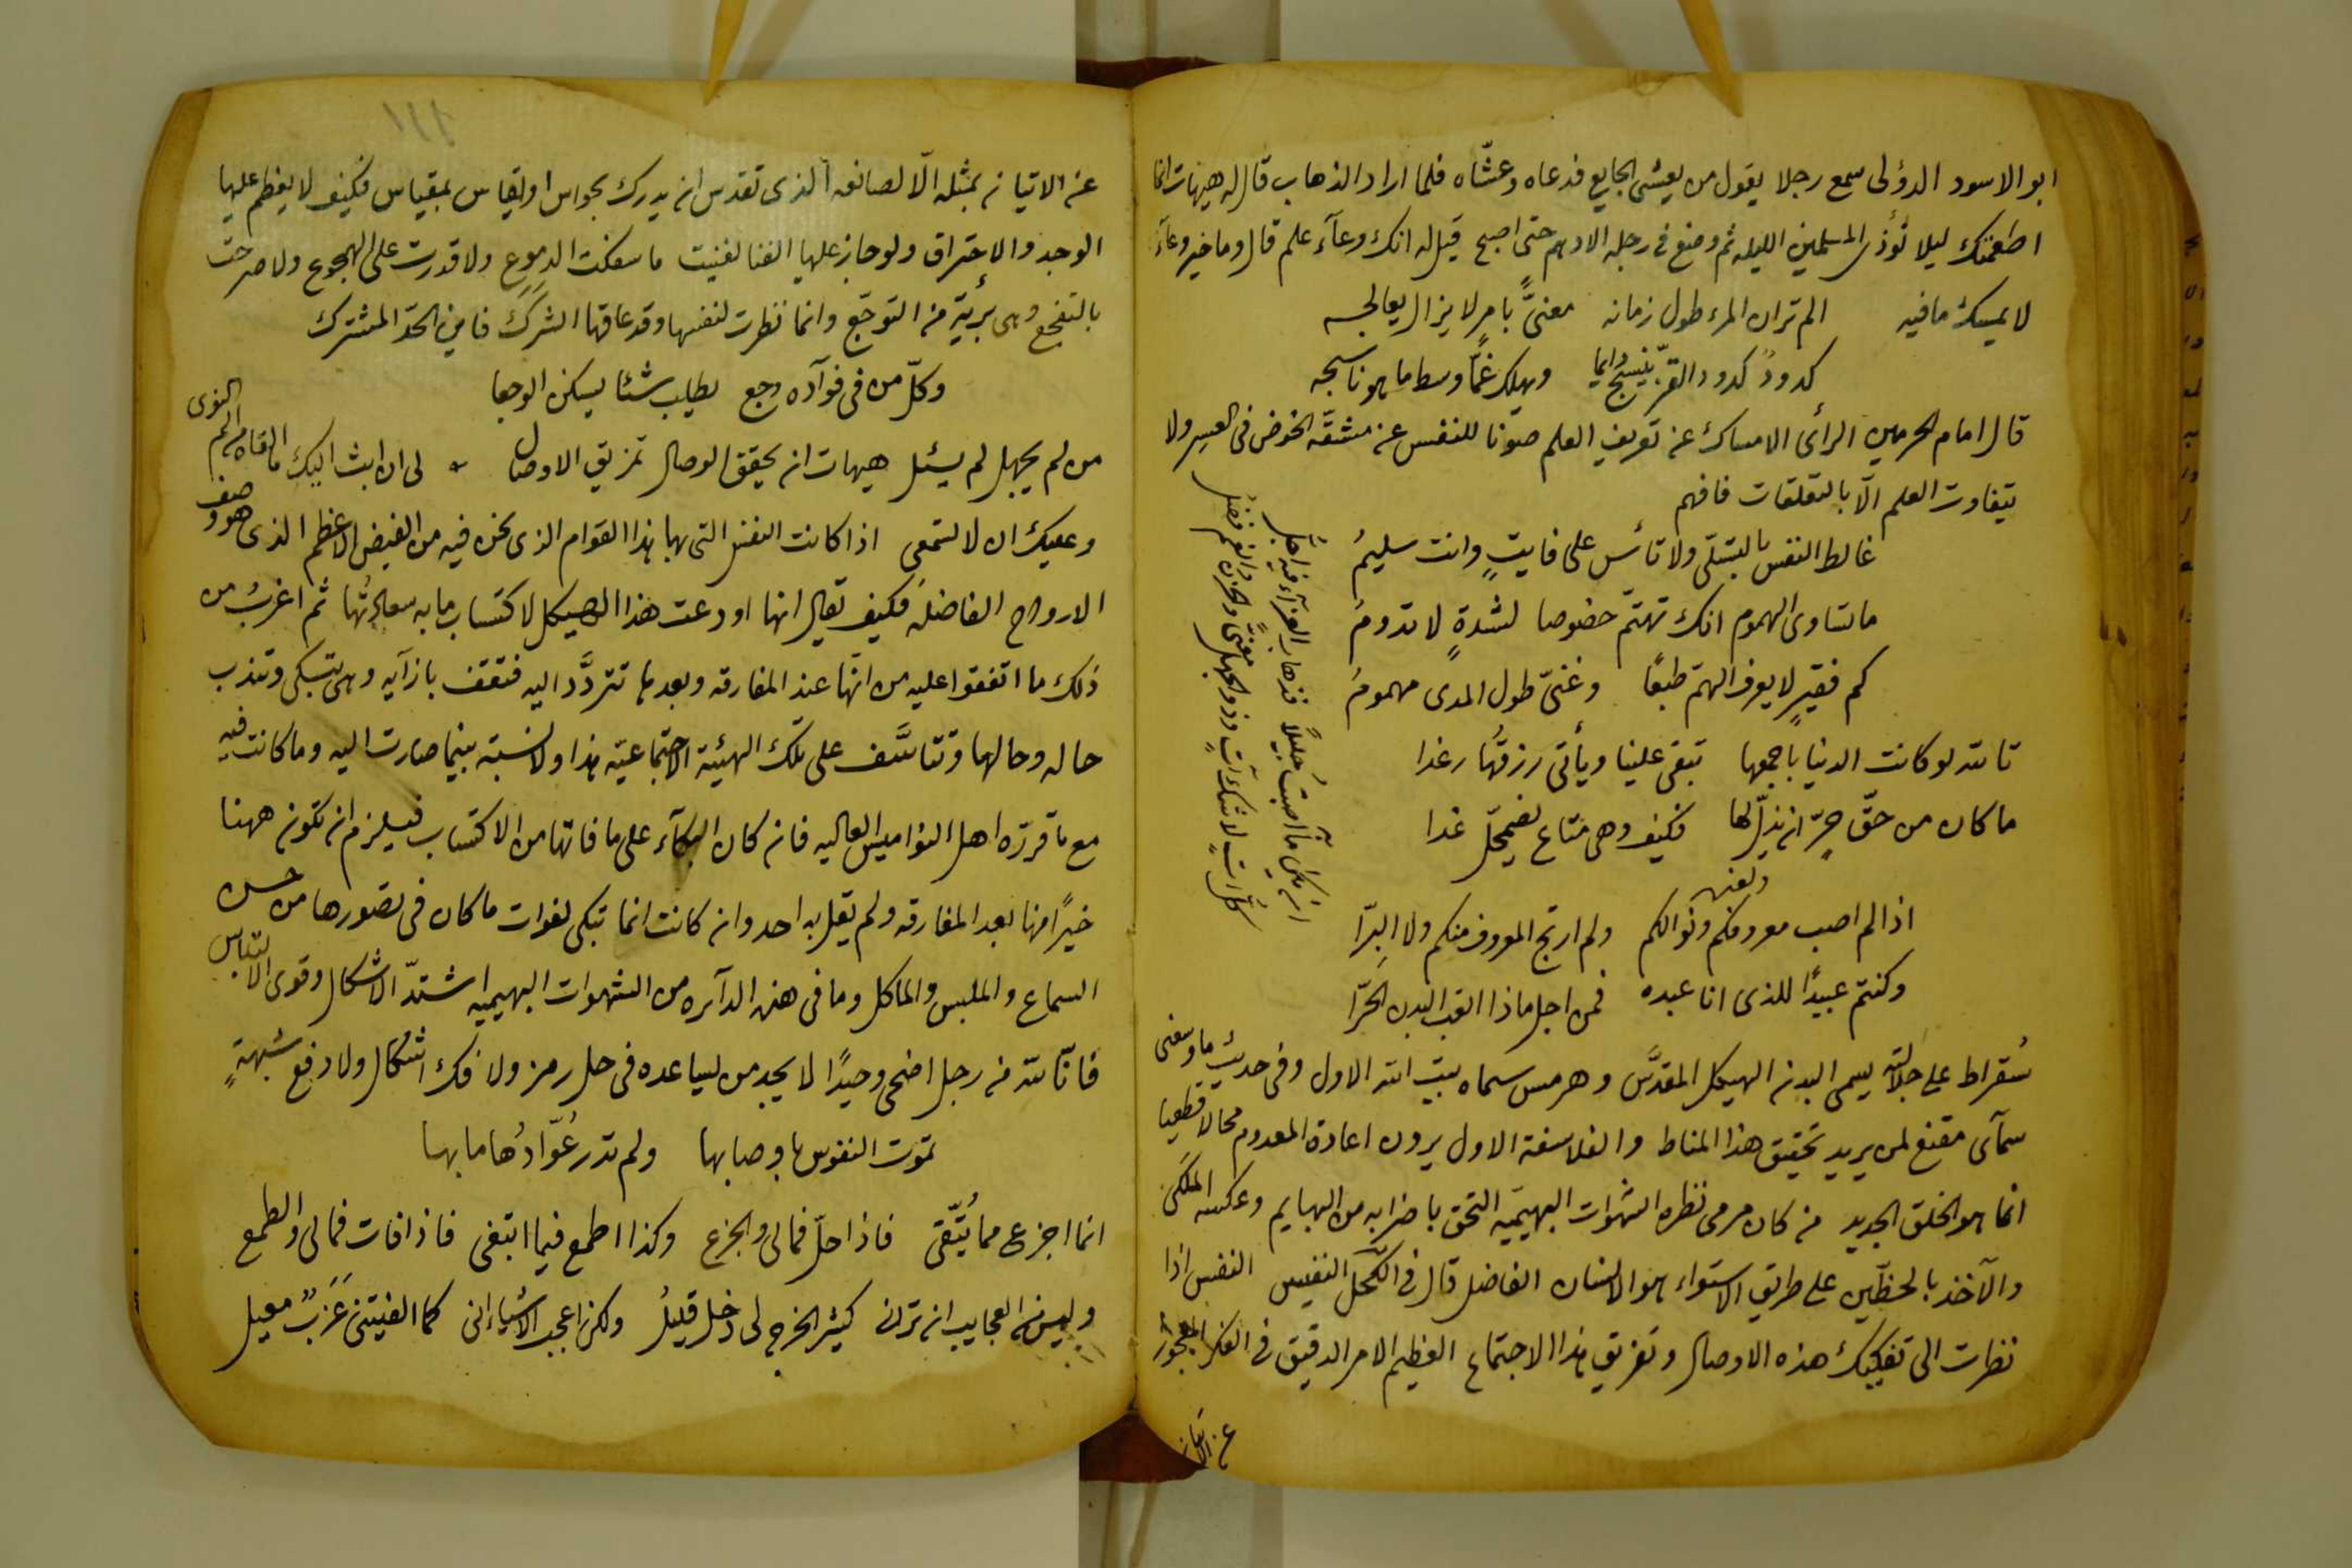 ابو الاسود الدؤلى سمع رجلا يقول من يعشى الجايع فدعاه وعشّاه فلما اراد الذهاب قال له هيهات انما
اطعمتك ليلا تؤذى المسلمين الليله ثم وضع فى رجله الادهم حتى اصبح قيل له انك وعآء علم قال وما خير وعآء
لا يمسك ما فيه الم تر ان المرء طول زمانه معنىًّ بامرٍ لا يزال يعالجه
كدودٌ كدود القز ينسج دايما ويهلك غمًّا وسط ما هو ناسجه
قال امام الحرمين الرأى الامساك عن تعريف العلم صونا للنفس عن مشقّة الخوض فى العسير ولا
يتفاوت العلم الّا بالتعلقات فافهم
غالط النفس بالتسلّى ولا تأس على فايتٍ وانت سليمُ
ما تساوى الهموم انك تهتمّ خضوصا لشدةٍ لا تدومُ
كم فقيرٍ لا يعرف الهمّ طبعًا وغنىّ طول المدى مهمومُ
تالله لو كانت الدنيا باجمعها تبقى علينا ويأتى رزقُها رغدا
ما كان من حقّ حرٍّ ان يذلّ لها فكيف وهى متاع يضمحلّ غدا
اذا لم اصب معروفكم ونوالكم ولم ارتج المعروف منكم ولا البرّا
وكنتم عبيدًا للذى انا عبده فمن اجل ماذا اتعب البدن الحرّا
سُقراط على جلالته يسمى البدن الهيكل المقدَّس وهرمس سماه بيت الله الاول وفى حديث ما وسعنى
سمآى مقنع لمن يريد تحقيق هذا المناط والفلاسفة الاول يرون اعادة المعدوم محالا قطعيا
انما هو الخلق الجديد من كان مرمى نظره الشهوات البهيميّه التحق باضرابه من البهايم وعكسه الملكى
والآخذ بالحظّين على طريق الاستواء هو الانسان الفاضل قال فى الكحل النفيس النفس اذا
نظرت الى تفكيك هذه الاوصال وتفريق هذا الاجتماع العظيم الامر الدقيق فى الفكر المعجوز
عن الاتيان
عن الاتيان بمثله الّا لصانعه الذى تقدس ان يدرك بحواس او يقاس بمقياس فكيف لا يعظم عليها
الوجد والاحتراق ولو جاز عليها الفنا لفنيت ما سفكت الدموع ولا قدرت على الهجوع ولا صرحت
بالتفجع وهى بريّة من التوجّع وانما نظرت لنفسها وقد عاقها الشَرَك فاين الحدّ المشترك
وكلّ من فى فوآده وجع يطلب شئا يسكن الوجعا
من لم يجهل لم يسئل هيهات ان يحقق الوصال تمزيق الاوصال لى ان ابث اليك ما القاه من الم النوى
وعليك ان لا تسمعى اذا كانت النفس التى بها هذا القوام الذى نحن فيه من الفيض الاعظم الذى هو وصف
الارواح الفاضله فكيف يقال انها اودعت هذا الهيكل لاكتساب ما به سعادتُها ثم اغربُ من
ذلك ما اتفقوا عليه من انّها عند المفارقه وبعدها تتردَّد اليه فتقف بازآيه وهى تبكى وتندب
حاله وحالها وتتاسَّف على تلك الهيئية الاجتماعيّه هذا ولا نسبة بينما صارت اليه وما كانت فيه
مع ما قررّه اهل النواميس العاليه فان كان البكآء على ما فاتها من الاكتساب فيلزم ان تكون ههنا
خيرًا منها بعد المفارقه ولم يقل به احد وان كانت انما تبكى لفوات ما كان فى تصورها من حسن
السماع والملبس والماكل وما فى هذه الدآره من الشهوات البهيميه اشتدّ الاشكال وقوى الالتباس
فانّا لله من رجل اضحى وحيدًا لا يجد من يساعده فى حل رمز ولا فك اشكال ولا رفع شبهةٍ
تموت النفوس باوصابها ولم تدر عُوّادُها ما بها
انما اجزع مما يُتّقى فاذا حلّ فمالى والجزع وكذا اطمع فيما ابتغى فاذا فات فمالى والطمع
وليس من العجايب ان ترانى كثير الخرج لى دخل قليلُ ولكن اعجب الاشياء انى كما الفيتنى عَزَبٌ معيل